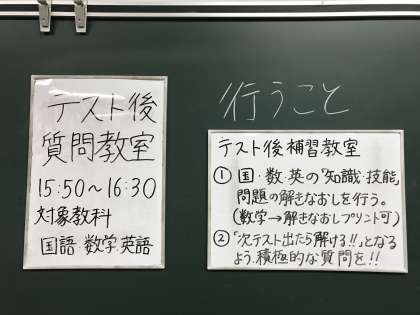 テスト後
質問教室
15:50~16:30
対象教科
国語 数学 英語
行うこと
テスト後補習教室
① 国・数・英の「知識・技能」
問題の解きなおしを行う。
(数学→解きなおしプリント可)
② 「次テスト出たら解ける!!」となる
よう、積極的な質問を!!